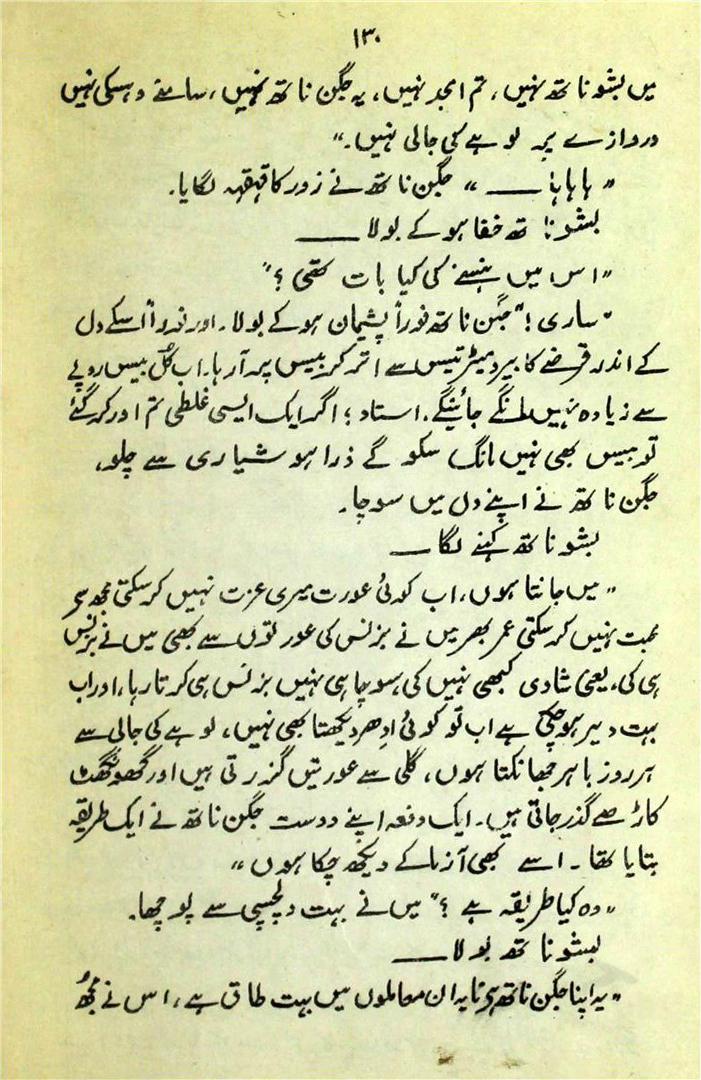 ۱۳۰
میں بشو ناتھ نہیں، تم امجد نہیں، یہ جگن ناتھ نہیں، سامنے وہسکی نہیں
دروازے پر لوہے کی جالی نہیں۔"
"ہا ہا ہا ——" جگن ناتھ نے زور کا قہقہہ لگایا۔
بشوناتھ خفا ہو کے بولا ——
"اس میں ہنسنے کی کیا بات تھی؟"
"ساری!" جگن ناتھ فوراً پشیمان ہو کے بولا۔ اور فوراً اسکے دل
کے اندر قرضے کا بیرومیٹر تیس سے اتر کر بیس پہ آ رہا۔ اب کُل بیس روپے
سے زیادہ نہیں مانگے جائینگے۔ استاد! اگر ایک ایسی غلطی تم اور کر گئے
تو بیس بھی نہیں مانگ سکو گے ذرا ہوشیاری سے چلو،
جگن ناتھ نے اپنے دل میں سوچا۔
بشوناتھ کہنے لگا ——
"میں جانتا ہوں، اب کوئی عورت میری عزت نہیں کر سکتی مجھ سے
محبت نہیں کر سکتی عمر بھر میں نے بزنس کی عورتوں سے بھی میں نے بزنس
ہی کی، یعنی شادی کبھی نہیں کی، سوچا ہی نہیں بزنس ہی کرتا رہا، اور اب
بہت دیر ہو چکی ہے اب تو کوئی ادھر دیکھتا بھی نہیں، لوہے کی جالی سے
ہر روز باہر جھانکتا ہوں، گلی سے عورتیں گزرتی ہیں اور گھونگھٹ
کاڑھے گذر جاتی ہیں۔ ایک دفعہ اپنے دوست جگن ناتھ نے ایک طریقہ
بتایا تھا۔ اسے بھی آزما کے دیکھ چکا ہوں"
"وہ کیا طریقہ ہے؟" میں نے بہت دلچسپی سے پوچھا۔
بشوناتھ بولا ——
"یہ اپنا جگن ناتھ ہے نا یہ ان معاملوں میں بہت طاق ہے، اس نے مجھے